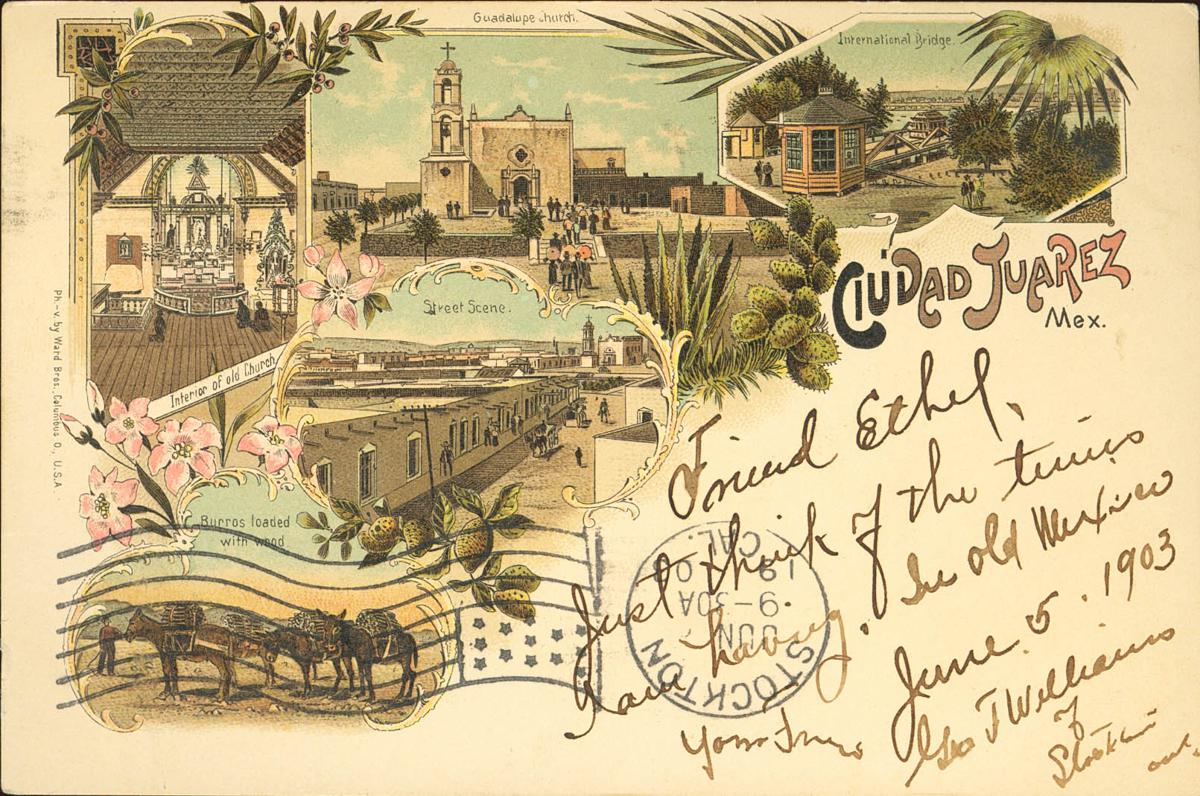 Guadalupe Church.
International Bridge.
CIUDAD JUAREZ
Mex.
Street Scene.
Interior of old Church
Burros loaded
with wood
Ph.-v. by Ward Bros., Columbus O., U.S.A.
Friend Ethel,
Just think of the times
I am having, In old Mexico
June. 5. 1903
Your Frien
Geo T Williams
of
Stockton
STOCKTON
CAL.
9-30A